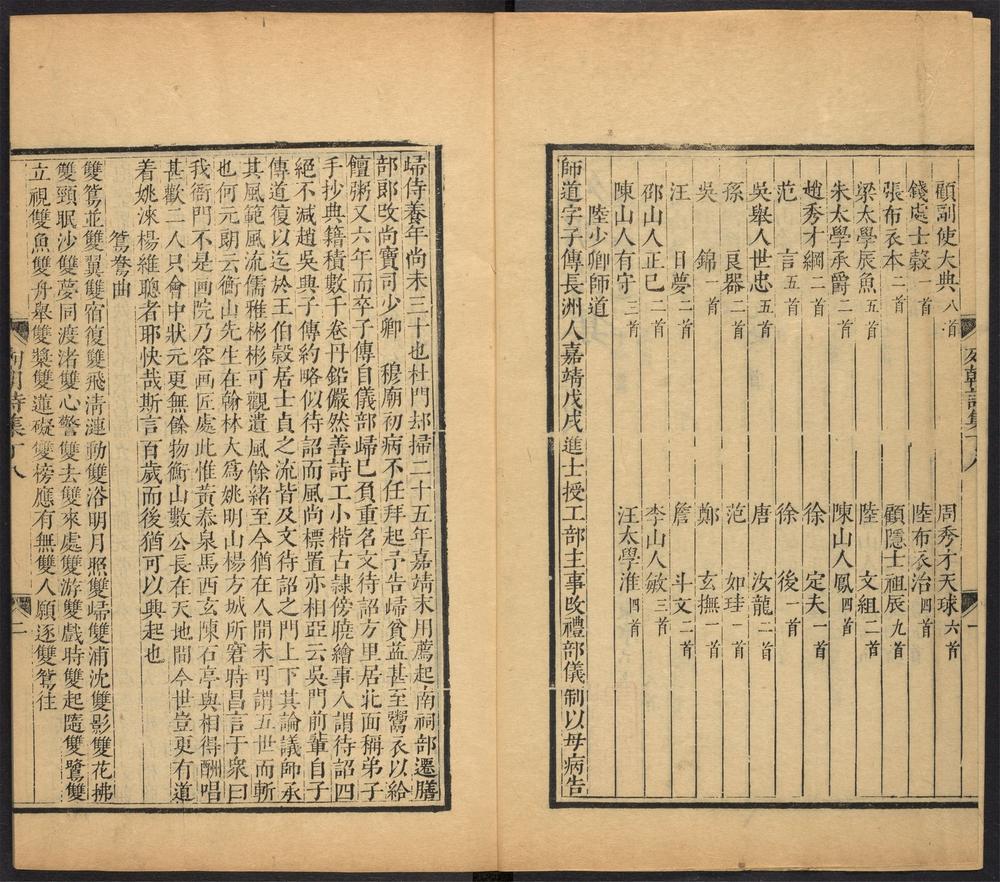 顧副使大典八首　周秀才天球六首
錢處士榖一首　陸布衣治四首
張布衣本二首　顧隱士祖辰九首
梁太學辰魚五首　陸　文組二首
朱太學承爵二首　陳山人鳳四首
趙秀才綱二首　徐　定夫一首
范　言五首　徐　後一首
吳舉人世忠五首　唐　汝龍二首
孫　艮器二首　范　如珪一首
吳　錦一首　鄭　玄撫一首
汪　日夢二首　詹　斗文二首
邵山人正已二首　李山人敏三首
陳山人有守三首　汪太學淮四首
陸少卿師道
師道字子傳長洲人嘉靖戊戌進士授工部主事改禮部儀制以母病告
歸侍養年尚未三十也杜門却掃二十五年嘉靖末用薦起南祠部遷膳
部郎改尚寶司少卿　穆廟初病不任拜起予告歸貧益甚至鬻衣以給
饘粥又六年而卒子傳自儀部歸已負重名文待詔方里居北面稱弟子
手抄典籍積數千卷丹鉛儼然善詩工小楷古隸傍曉繪事人謂待詔四
絕不減趙吳興子傳約略似待詔而風尚標置亦相亞云吳門前輩自子
傳道復以迄於王伯榖居士貞之流皆及文待詔之門上下其論議師承
其風範風流儒雅彬彬可觀遺風餘緒至今猶在人間未可謂五世而斬
也何元朗云衡山先生在翰林大爲姚明山楊方城所窘時昌言于衆曰
我衙門不是画院乃容画匠處此惟黃泰泉馬西玄陳石亭與相得酬唱
甚歡二人只會中狀元更無餘物衡山數公長在天地間今世豈更有道
着姚淶楊維聰者耶快哉斯言百歲而後猶可以興起也
鴛鴦曲
雙鴛並雙翼雙宿復雙飛清漣動雙浴明月照雙歸雙浦沈雙影雙花拂
雙頸眠沙雙夢同渡渚雙心警雙去雙來處雙游雙戲時雙起隨雙鷺雙
立視雙魚雙舟舉雙槳雙蓮礙雙榜應有無雙人願逐雙鴛往
列朝詩集丁八
二